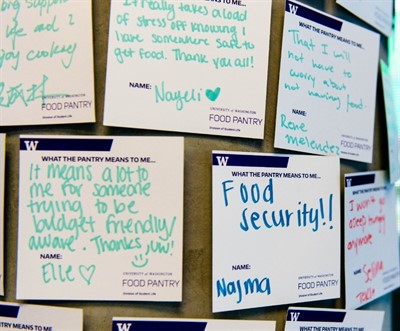 life and I
enjoy cooking
UNIVERSITY of WASHINGTON
FOOD PANTRY
Division of Student Life
It really takes a load
of stress off knowing I
have somewhere safe to
get food. Thank you all!
NAME:
Nayeli ♡
UNIVERSITY of WASHINGTON
FOOD PANTRY
Division of Student Life
WHAT THE PANTRY MEANS TO ME...
That I will
not have to
worry about
not having food.
NAME:
Rene
melendez
FOOD PANTRY
W
WHAT THE PANTRY MEANS TO ME...
It means a lot to
me for someone
trying to be
budget friendly/
aware. Thanks, UW!
NAME:
Elle ♡
UNIVERSITY of WASHINGTON
FOOD PANTRY
Division of Student Life
W
WHAT THE PANTRY MEANS TO ME...
Food
security!!
NAME:
Najma
UNIVERSITY of WASHINGTON
FOOD PANTRY
Division of Student Life
W
WHAT THE PANTRY
I won't go
asleep hungry
anymore
NAME:
Selina
W
WHAT THE PANTRY MEANS TO ME...
W
WHAT THE PANTRY MEANS TO ME...